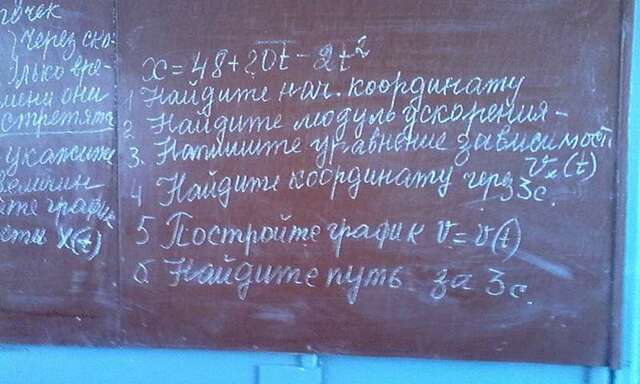 точек
) Через ско-
олько вре-
мени они
стретят
укажите
величин
x(t)
x = 48 + 20t - 2t²
1 Найдите нач. координату
2 Найдите модуль ускорения-
3. Напишите уравнение зависимост
vₓ(t)
4 Найдите координату через 3с.
5 Постройте график v = v(t)
6 Найдите путь за 3с.